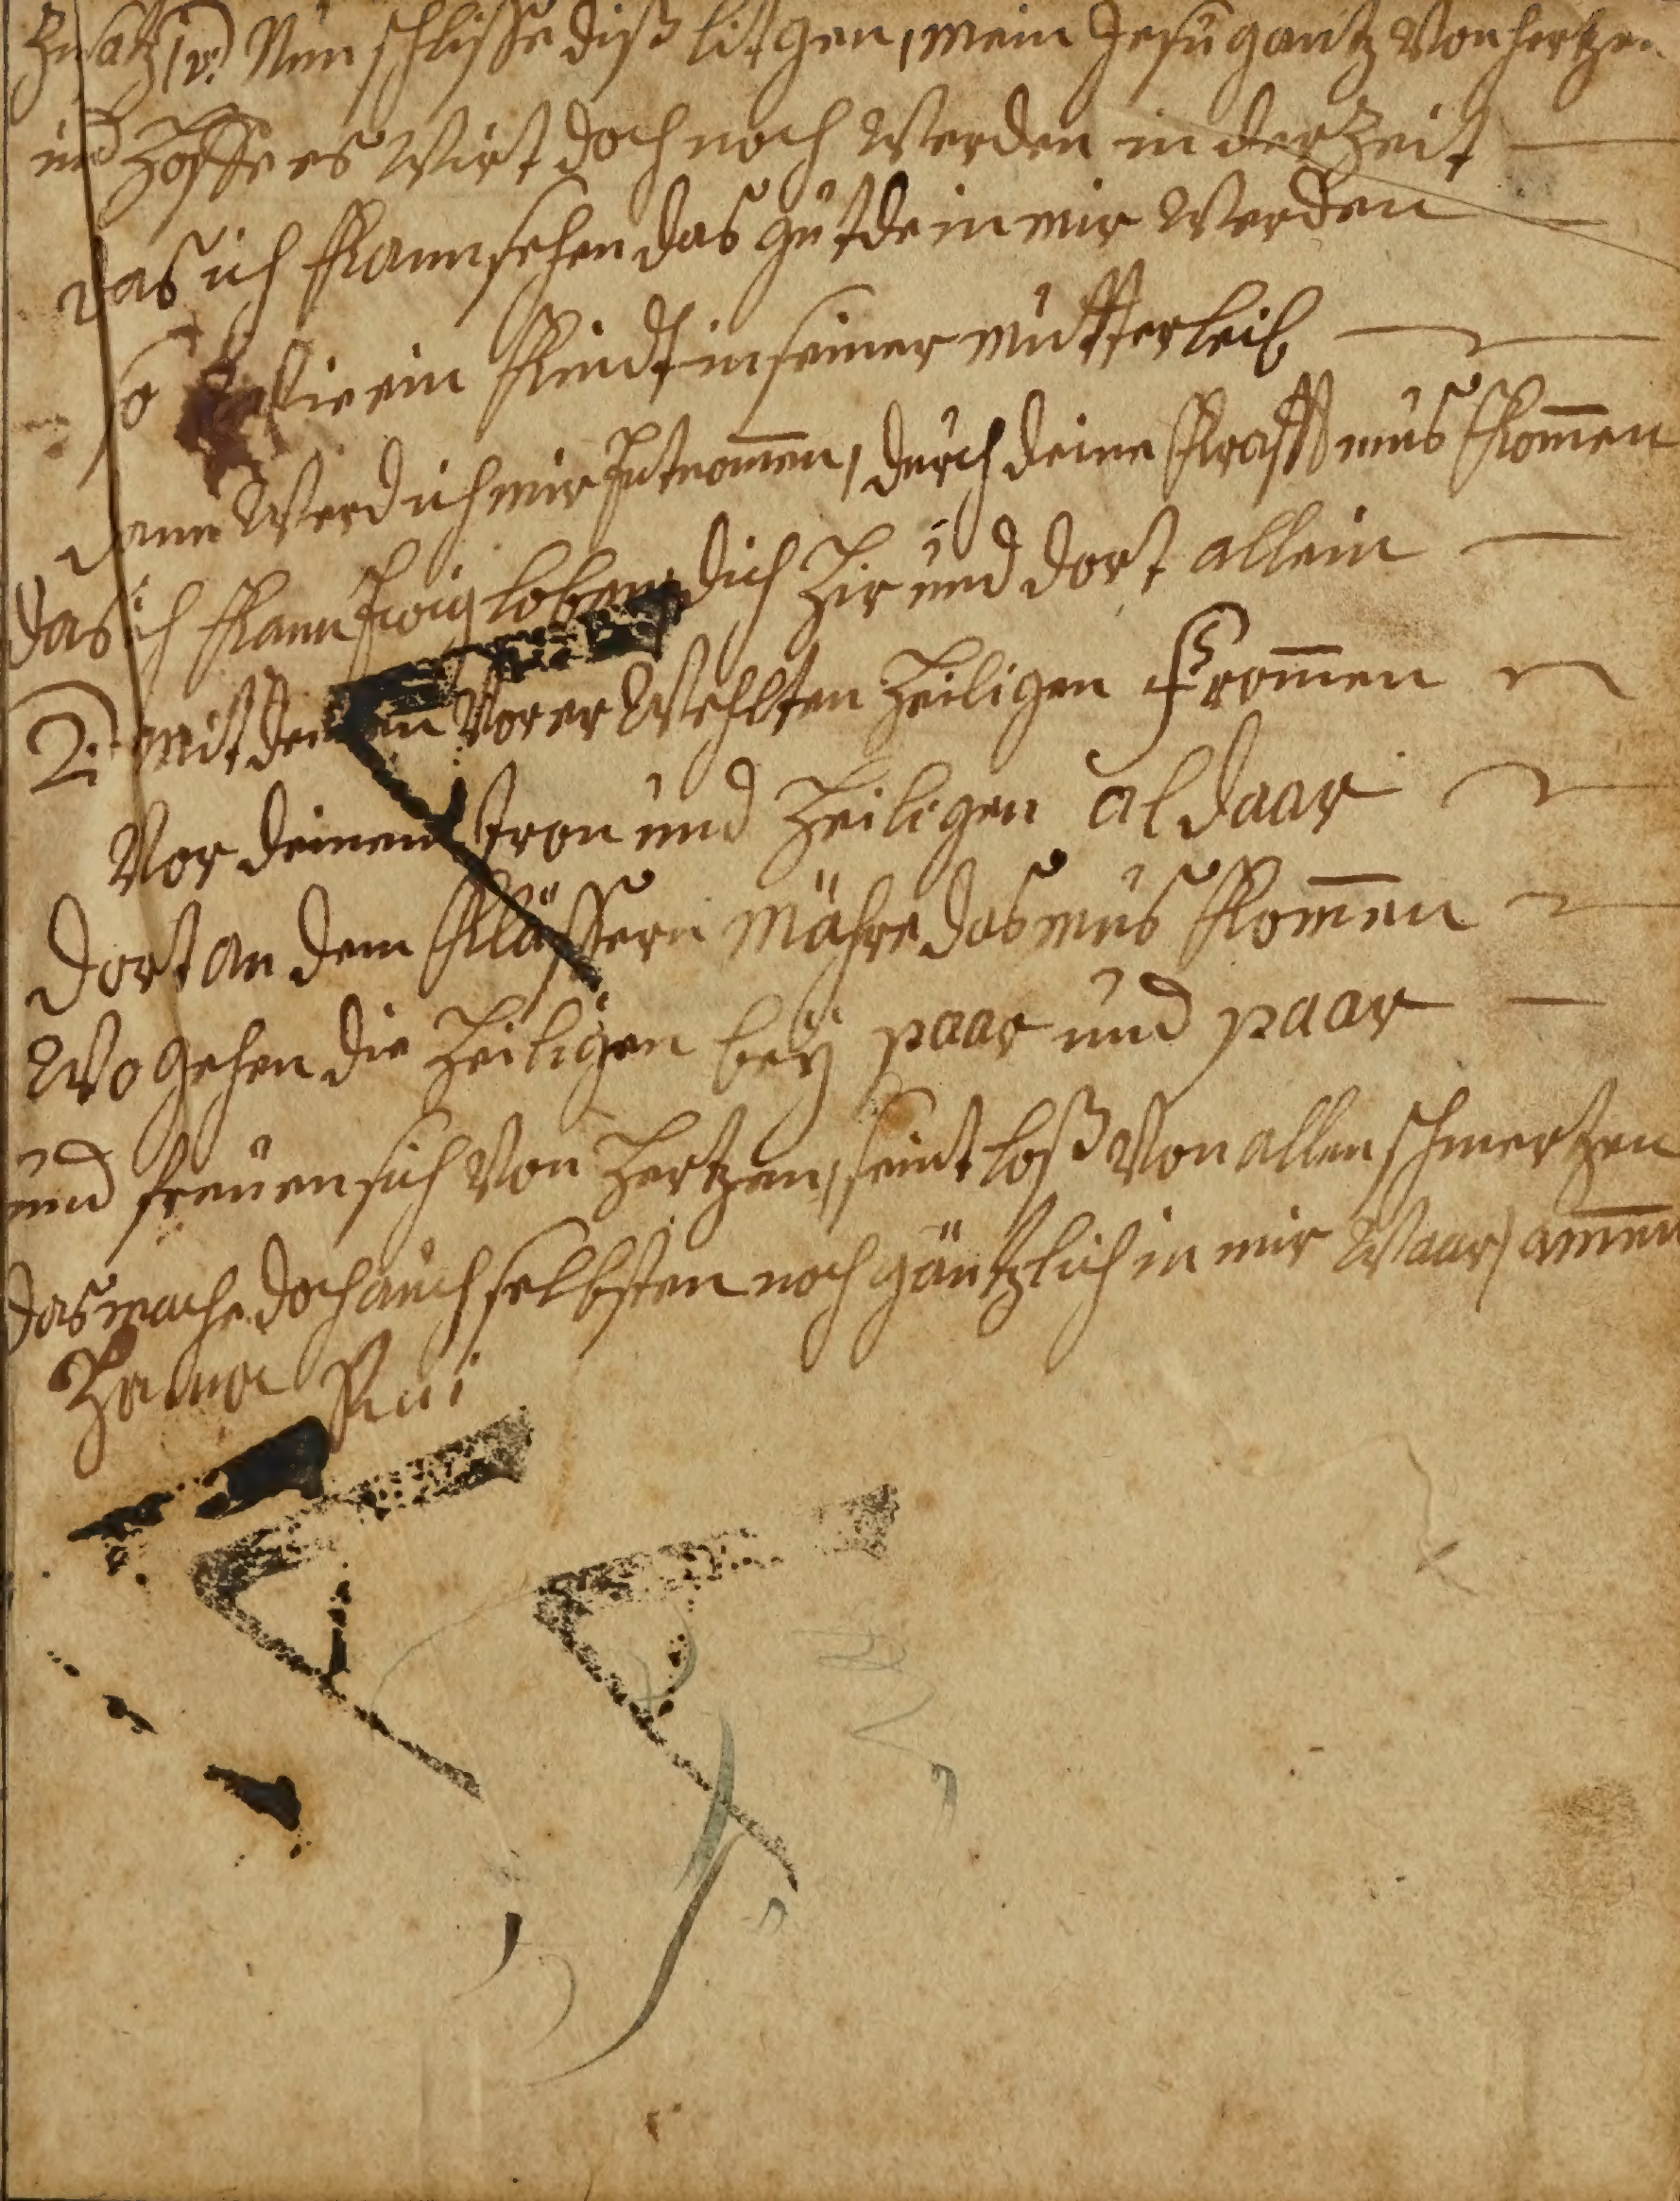 Zusatz 1 v. Nun schlisse diß litgen, mein Jesu gantz von hertzen
und hoffe es wirt doch noch werden in der Zeit
das ich kann sehen das gut de in mir werden
so wie ein Kindt in seiner mutter leib
dann werd ich mir Entnom̄en, durch deine Krafft mus kom̄en
das ich kann Ewig loben dich hir und dort allein
2: mit denen Vor er wehlten heiligen From̄en
Vor deinem tron und heiligen aldaar
dort an dem Klässern mähre das mus kom̄en
wo gehen die heiligen bey paar und paar
und freuen sich von hertzen, seint loß von allen schmertzen
das mache doch auch selbsten noch gäntzlich in mir waar, am̄en